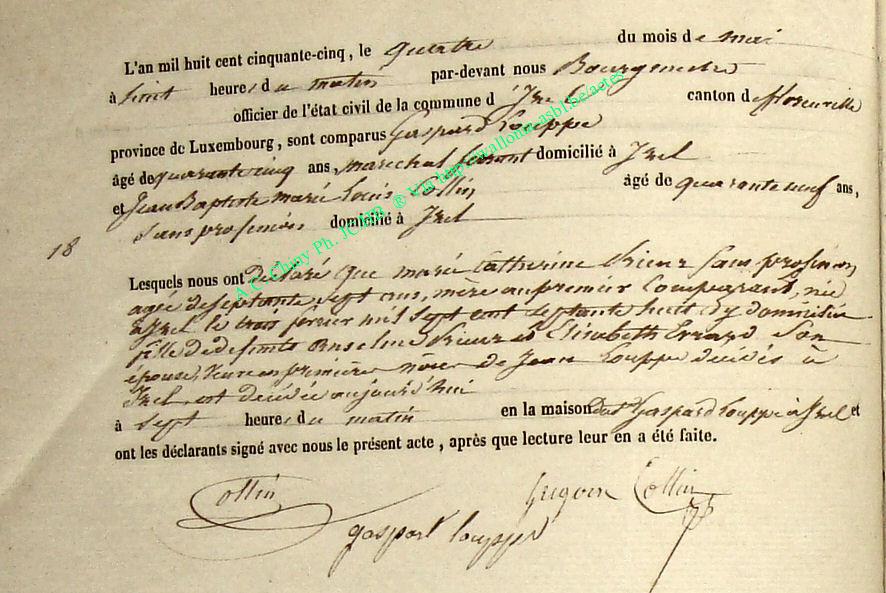 L'an mil huit cent cinquante-cinq, le quatre du mois de mai
à huit heures du matin par-devant nous Bourgmestre
officier de l'état civil de la commune d'Izel canton de florenville
province de Luxembourg, sont comparus Gaspard Louppe
âgé de quarante cinq ans, marechal ferrant domicilié à Izel
et Jean Baptiste marie Louis Collin, âgé de quarante neuf ans,
sans profession domicilié à Izel
18
Lesquels nous ont déclaré que marie Catherine sans profession,
agée de septante sept ans, mère au premier Comparant, née
à Izel le trois février mil sept cent septante huit y domiciliée
fille de defunts anselme et Elisabeth Errard son
épouse, Veuve en première nôce de Jean Louppe décédés à
Izel, est décédée aujourd'hui
à sept heures du matin en la maison dud. Gaspard Louppe à Izel et
ont les déclarants signé avec nous le présent acte, après que lecture leur en a été faite.
Collin Collin
gaspart loupp
A.C. Chiny Ph. ® Via http://wallonia-asbl.be/actes